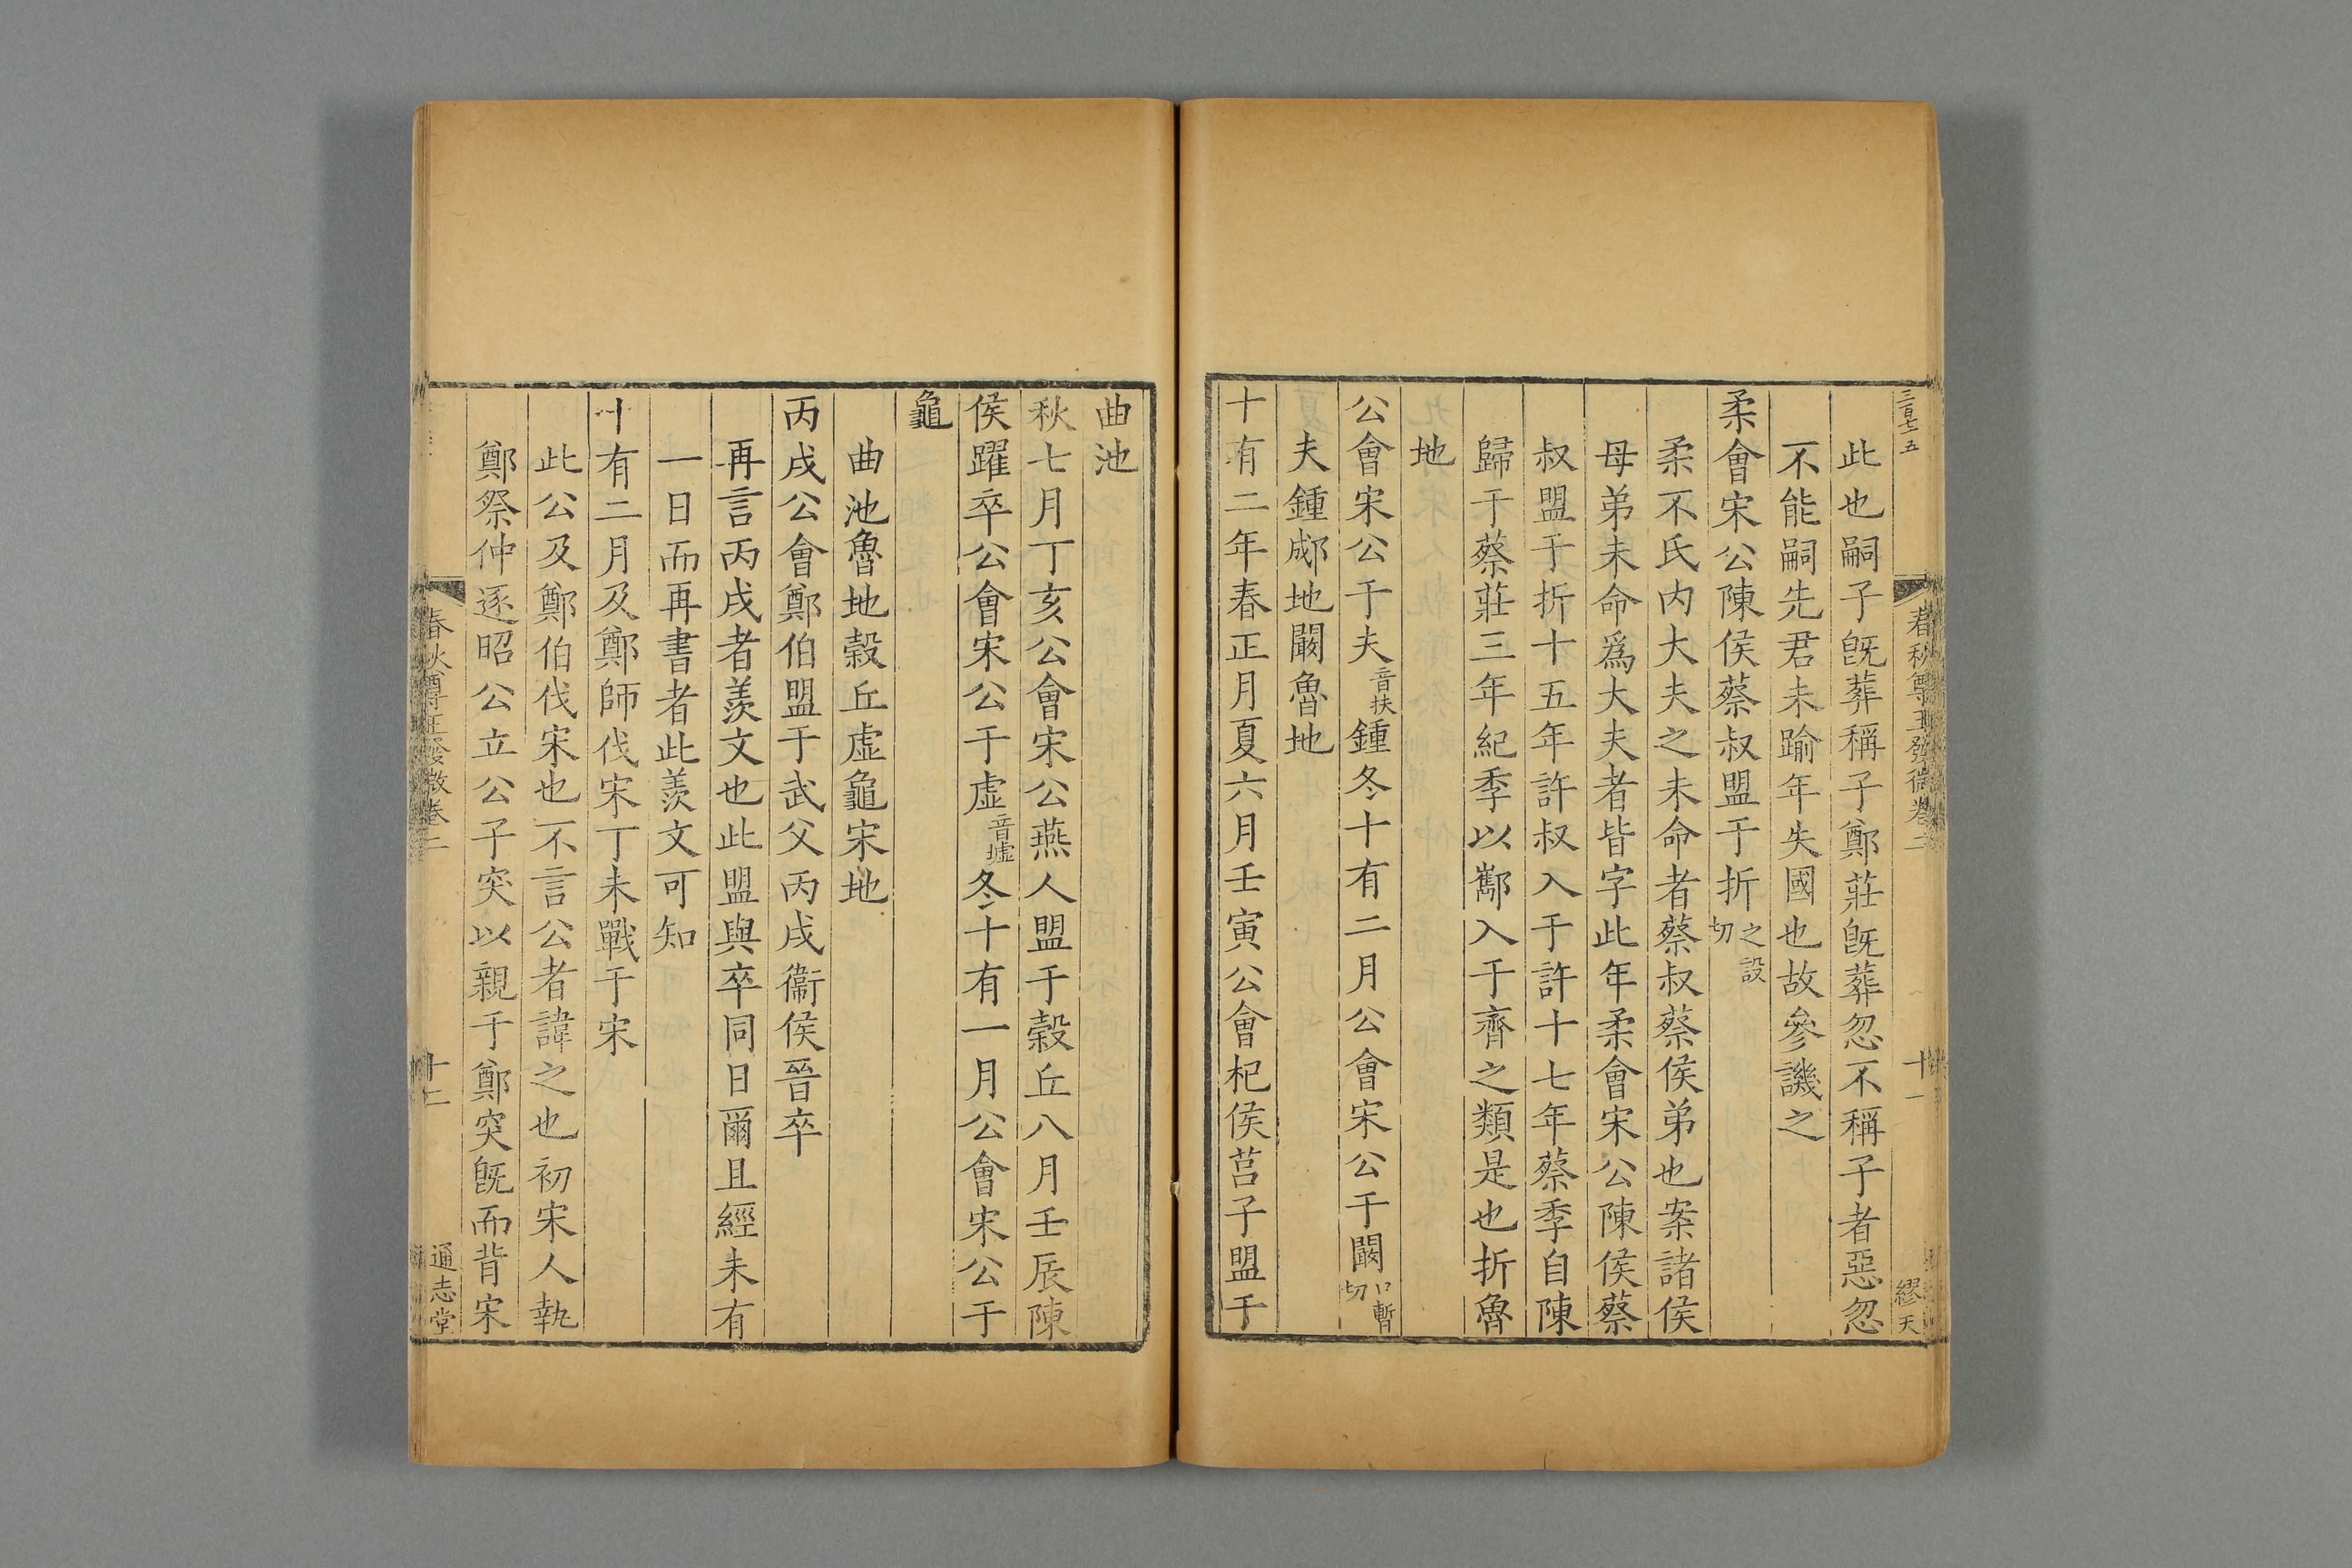 三百七十五
春秋尊王發微卷二
十一
繆天
此也嗣子旣葬稱子鄭莊旣葬忽不稱子者惡忽
不能嗣先君未踰年失國也故參譏之
柔會宋公陳侯蔡叔盟于折之設切
柔不氏内大夫之未命者蔡叔蔡侯弟也案諸侯
母弟未命爲大夫者皆字此年柔會宋公陳侯蔡
叔盟于折十五年許叔入于許十七年蔡季自陳
歸于蔡莊三年紀季以酅入于齊之類是也折魯
地
公會宋公于夫音扶鍾冬十有二月公會宋公于闞口暫切
夫鍾郕地闞魯地
十有二年春正月夏六月壬寅公會杞侯莒子盟于
曲池
秋七月丁亥公會宋公燕人盟于穀丘八月壬辰陳
侯躍卒公會宋公于虛音墟冬十有一月公會宋公于
龜
曲池魯地穀丘虛龜宋地
丙戌公會鄭伯盟于武父丙戌衞侯晉卒
再言丙戌者羨文也此盟與卒同日爾且經未有
一日而再書者此羨文可知
十有二月及鄭師伐宋丁未戰于宋
此公及鄭伯伐宋也不言公者諱之也初宋人執
鄭祭仲逐昭公立公子突以親于鄭突旣而背宋
春秋尊王發微卷二
十二
通志堂